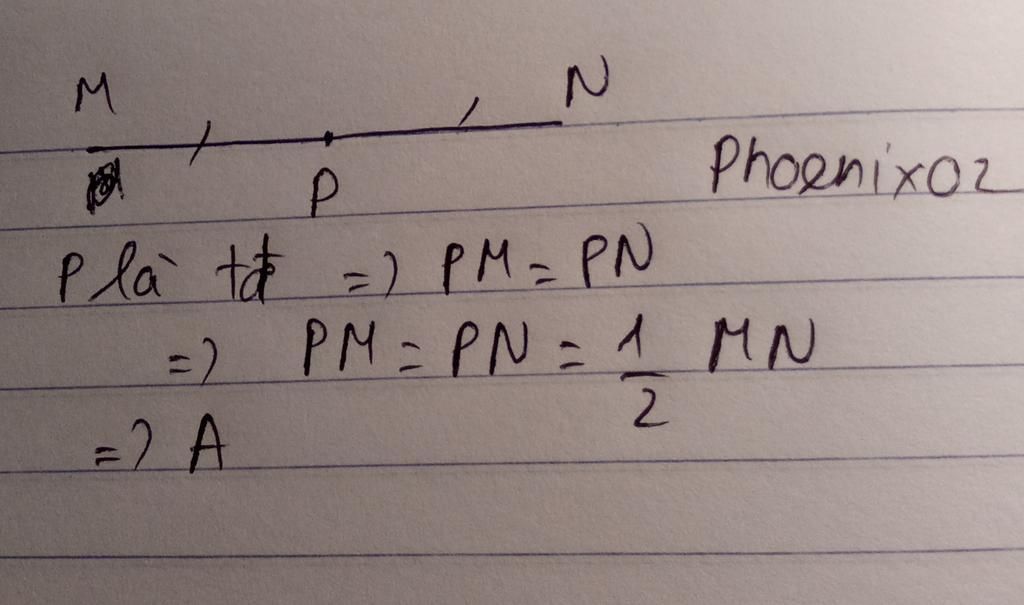 M N
P
Phoenix02
P là tđ => PM = PN
=> PM = PN = 1/2 MN
=> A